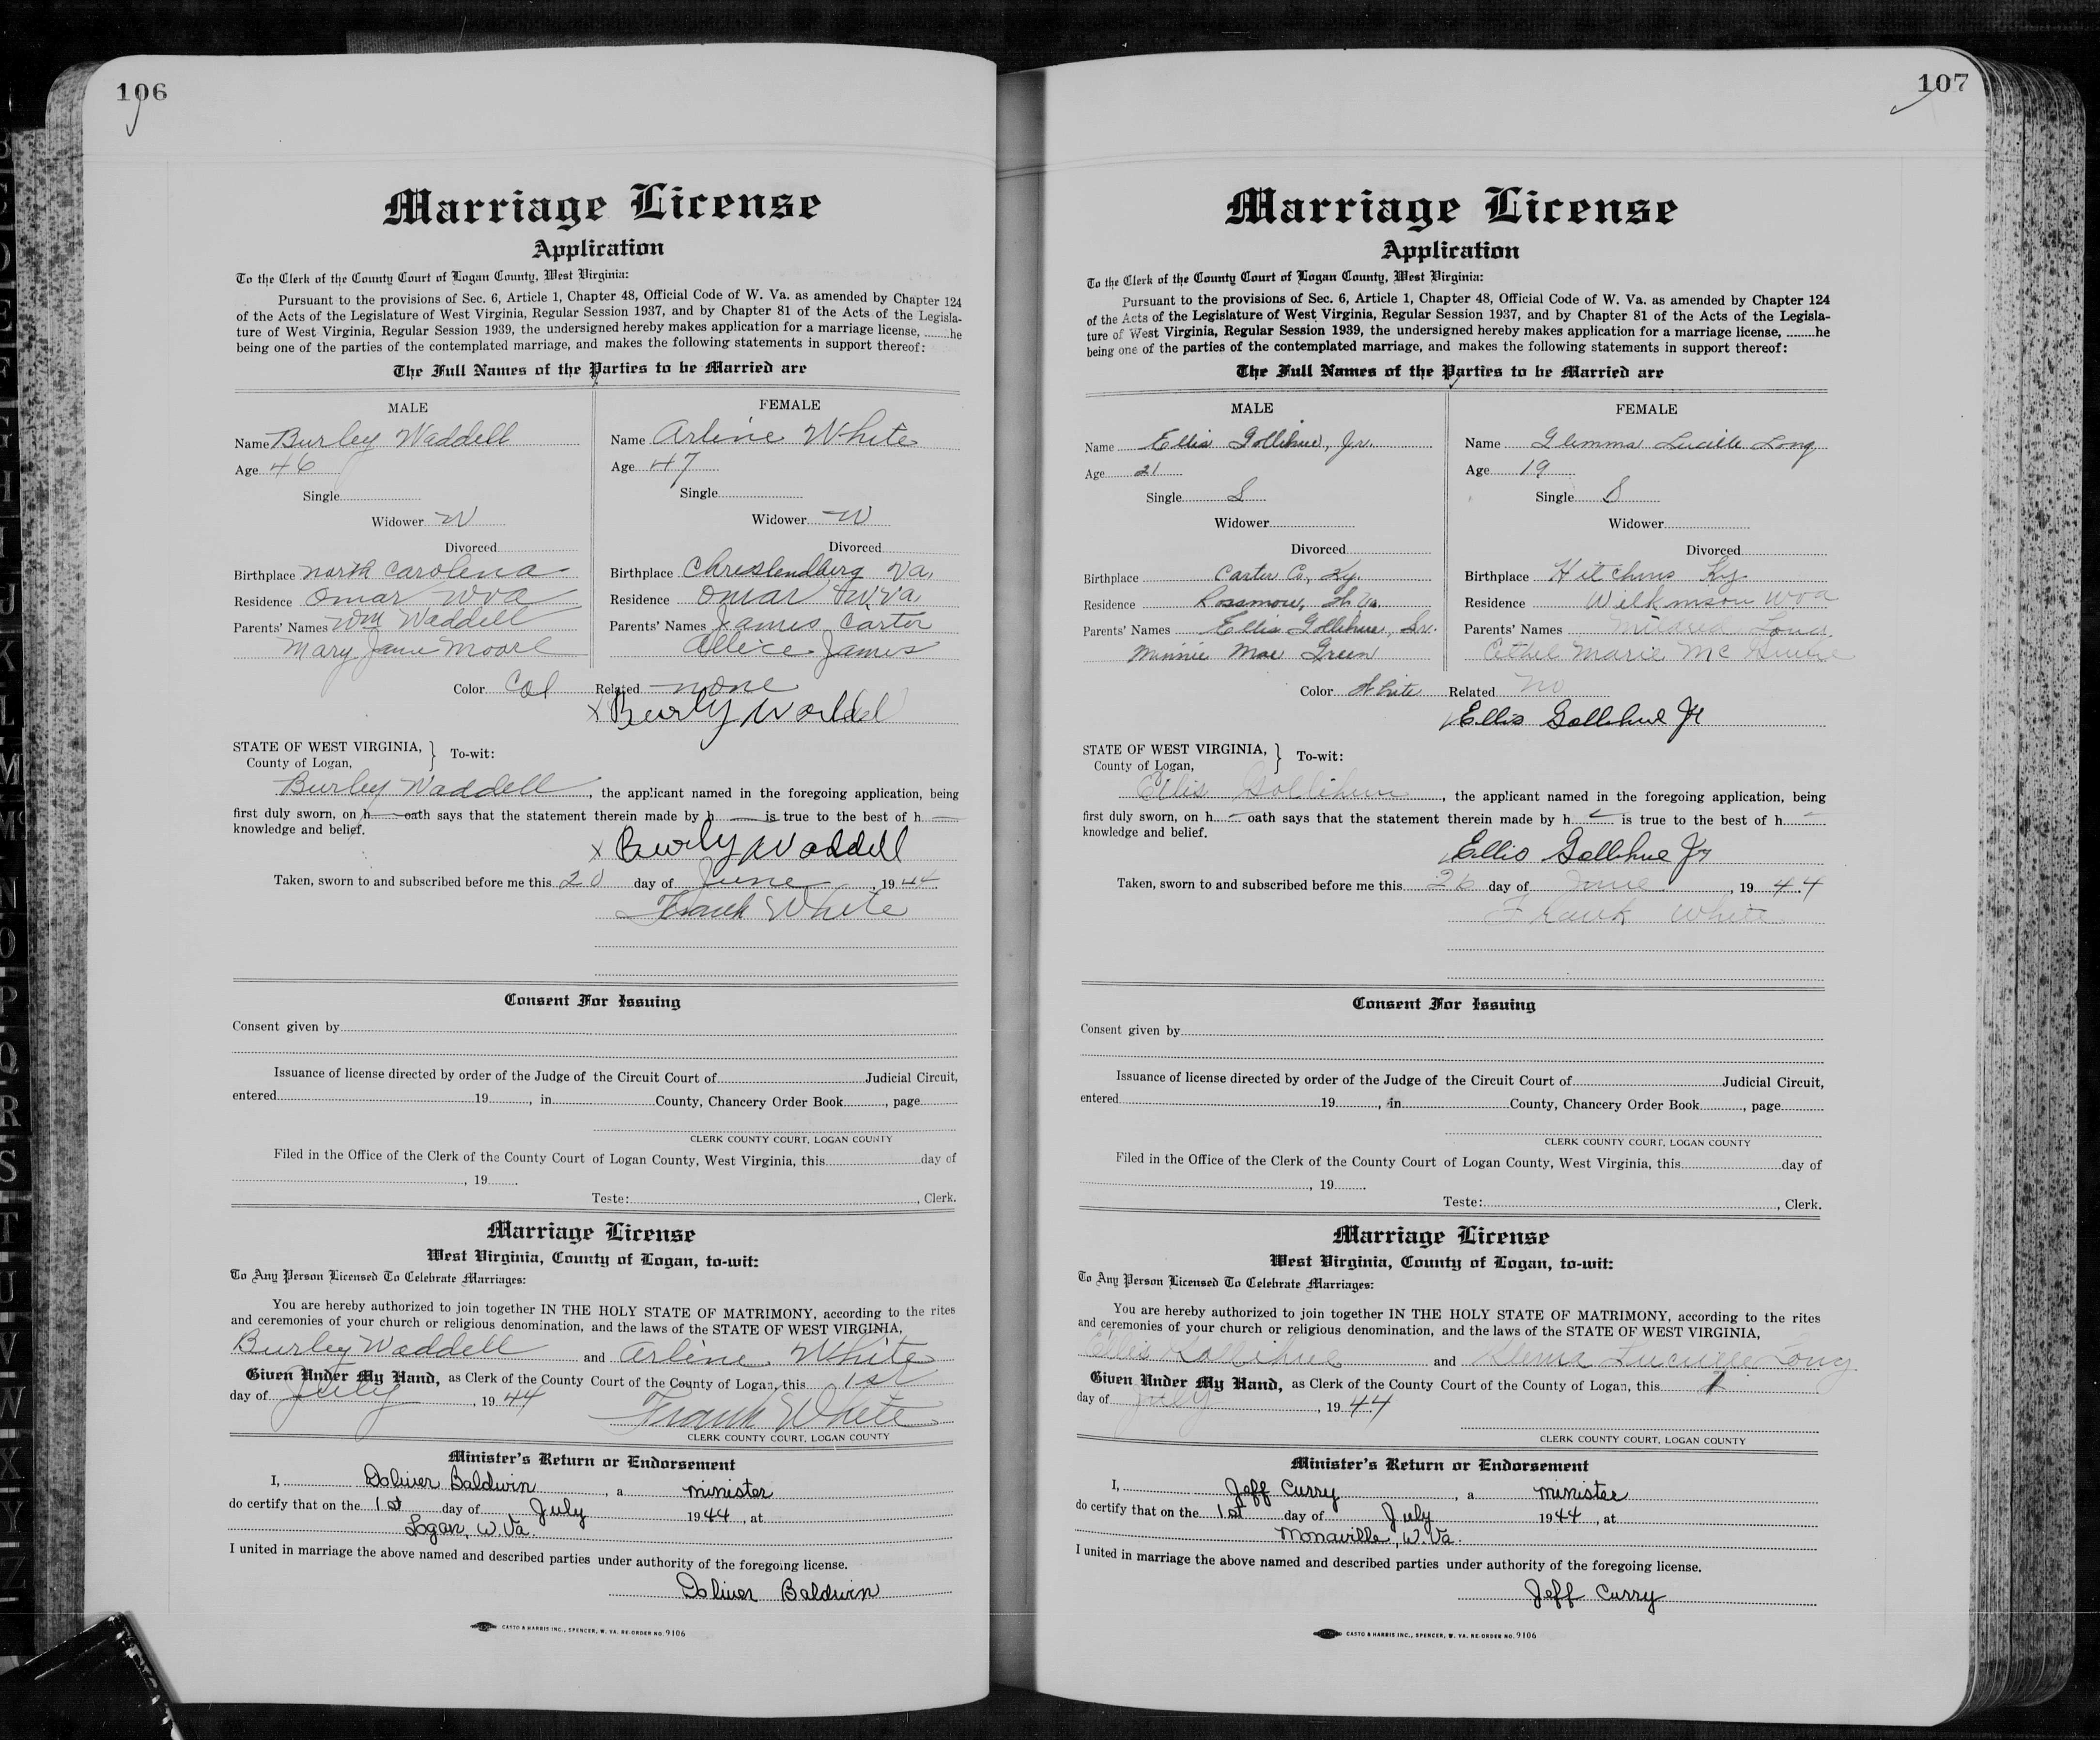 106
Marriage License
Application
To the Clerk of the County Court of Logan County, West Virginia:
Pursuant to the provisions of Sec. 6, Article 1, Chapter 48, Official Code of W. Va. as amended by Chapter 124
of the Acts of the Legislature of West Virginia, Regular Session 1937, and by Chapter 81 of the Acts of the Legisla-
ture of West Virginia, Regular Session 1939, the undersigned hereby makes application for a marriage license, ........he
being one of the parties of the contemplated marriage, and makes the following statements in support thereof:
The Full Names of the Parties to be Married are
MALE
Name Burley Waddell
Age 46
Single
Widower W
Divorced
Birthplace North Carolena
Residence Omar WVa
Parents' Names Wm Waddell
Mary Jane Moore
FEMALE
Name Arline White
Age 47
Single
Widower W
Divorced
Birthplace Chrislendberg Va.
Residence Omar W.Va.
Parents' Names James Carter
Allice James
Color Col Related none
x Burly Woddel
STATE OF WEST VIRGINIA, } To-wit:
County of Logan,
Burley Waddell, the applicant named in the foregoing application, being
first duly sworn, on h— oath says that the statement therein made by h— is true to the best of h—
knowledge and belief.
x Burly Woddell
Taken, sworn to and subscribed before me this 28 day of June, 1944
Frank White
Consent For Issuing
Consent given by
Issuance of license directed by order of the Judge of the Circuit Court of Judicial Circuit,
entered 19 , in County, Chancery Order Book , page
CLERK COUNTY COURT, LOGAN COUNTY
Filed in the Office of the Clerk of the County Court of Logan County, West Virginia, this day of
, 19
Teste: , Clerk.
Marriage License
West Virginia, County of Logan, to-wit:
To Any Person Licensed To Celebrate Marriages:
You are hereby authorized to join together IN THE HOLY STATE OF MATRIMONY, according to the rites
and ceremonies of your church or religious denomination, and the laws of the STATE OF WEST VIRGINIA,
Burley Waddell and Arline White
Given Under My Hand, as Clerk of the County Court of the County of Logan, this 1st
day of July, 1944 Frank White
CLERK COUNTY COURT, LOGAN COUNTY
Minister's Return or Endorsement
I, Doliver Baldwin, a minister
do certify that on the 1st day of July 1944, at
Logan, W. Va.
I united in marriage the above named and described parties under authority of the foregoing license.
Doliver Baldwin
CASTO & HARRIS INC., SPENCER, W. VA. RE-ORDER NO. 9106
107
Marriage License
Application
To the Clerk of the County Court of Logan County, West Virginia:
Pursuant to the provisions of Sec. 6, Article 1, Chapter 48, Official Code of W. Va. as amended by Chapter 124
of the Acts of the Legislature of West Virginia, Regular Session 1937, and by Chapter 81 of the Acts of the Legisla-
ture of West Virginia, Regular Session 1939, the undersigned hereby makes application for a marriage license, ........he
being one of the parties of the contemplated marriage, and makes the following statements in support thereof:
The Full Names of the Parties to be Married are
MALE
Name Ellis Gollihue, Jr.
Age 21
Single S
Widower
Divorced
Birthplace Carter Co., Ky.
Residence Rossmore, W. Va.
Parents' Names Ellis Gollihue, Sr.
Minnie Mae Green
FEMALE
Name Glemma Lucille Long
Age 19
Single S
Widower
Divorced
Birthplace Hitchins Ky.
Residence Wilkinson WVa
Parents' Names Mildred Long
Ethel Marie Mc
Color White Related No
Ellis Gollihue Jr
STATE OF WEST VIRGINIA, } To-wit:
County of Logan,
Ellis Gollihue, the applicant named in the foregoing application, being
first duly sworn, on h oath says that the statement therein made by h is true to the best of h
knowledge and belief.
Ellis Gollihue Jr
Taken, sworn to and subscribed before me this 26 day of June, 1944
Frank White
Consent For Issuing
Consent given by
Issuance of license directed by order of the Judge of the Circuit Court of Judicial Circuit,
entered 19 , in County, Chancery Order Book , page
CLERK COUNTY COURT, LOGAN COUNTY
Filed in the Office of the Clerk of the County Court of Logan County, West Virginia, this day of
, 19
Teste: , Clerk.
Marriage License
West Virginia, County of Logan, to-wit:
To Any Person Licensed To Celebrate Marriages:
You are hereby authorized to join together IN THE HOLY STATE OF MATRIMONY, according to the rites
and ceremonies of your church or religious denomination, and the laws of the STATE OF WEST VIRGINIA,
Ellis Gollihue and Glema Lucille Long
Given Under My Hand, as Clerk of the County Court of the County of Logan, this 1
day of July, 1944
CLERK COUNTY COURT, LOGAN COUNTY
Minister's Return or Endorsement
I, Jeff Curry, a minister
do certify that on the 1st day of July 1944, at
Monaville, W. Va.
I united in marriage the above named and described parties under authority of the foregoing license.
Jeff Curry
CASTO & HARRIS INC., SPENCER, W. VA. RE-ORDER NO. 9106